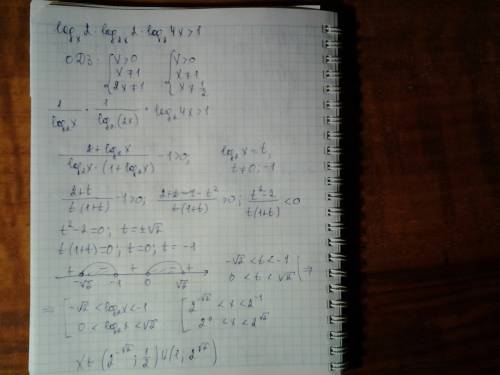 logₓ2 · log₂ₓ2 · log₂4x>1
ОДЗ: { x>0 { x>0
x≠1 x≠1
2x≠1 x≠1/2
1/log₂x · 1/log₂(2x) · log₂4x>1
(2+log₂x)/(log₂x·(1+log₂x)) -1>0; log₂x=t,
t≠0;-1
(2+t)/(t(1+t)) -1>0; (2+t-t-t²)/(t(1+t)) >0; (t²-2)/(t(1+t)) <0
t²-2=0; t=±√2
t(1+t)=0; t=0; t=-1
+ - + - + -√2<t<-1
-√2 -1 0 √2 0<t<√2 } ⇒
⇒ [ -√2<log₂x<-1 [ 2^(-√2)<x<2⁻¹
0<log₂x<√2 2⁰<x<2^(√2)
x∈(2^(-√2); 1/2)∪(1; 2^(√2))